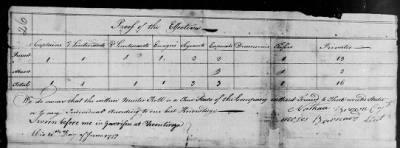 26
Proof of the Effectives
Captains 1 Lieutenants 2 Lieutenants Ensigns Serjeants Corporals Drummers Fifers Privates
Present 1 1 1 1 3 2 1 13
3
Total 1 1 1 1 3 3 1 16
We do swear that the within Muster Roll is a True State of the Company without Fraud to these united States
or to any Individual According to our best Knowledge
Sworn before me in Garrison at Ticonderoga
this Day of June 1777
Nathan Brown Capt
Moses Barnard Lieut